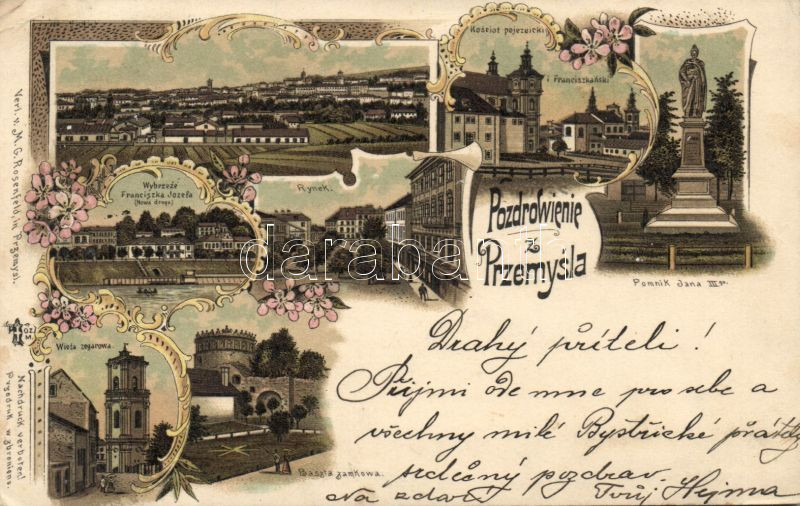 Kościoł pojezuicki
i Franciszkański
Wybrzeże
Franciszka Józefa
(Nowa droga)
Rynek.
Pozdrowienie
z
Przemyśla
Pomnik Jana III go
Wieża zegarowa.
Baszta zamkowa.
Verl. v. M. G. Rosenfeld, in Przemyśl.
Nachdruck verboten!
Przedruk wzbroniony.
darabanth
Drahý příteli!
Přijmi ode mne pro sebe a
všechny milé Bystřické přátely
srdečný pozdrav.
Na zdar! Tvůj Hejma